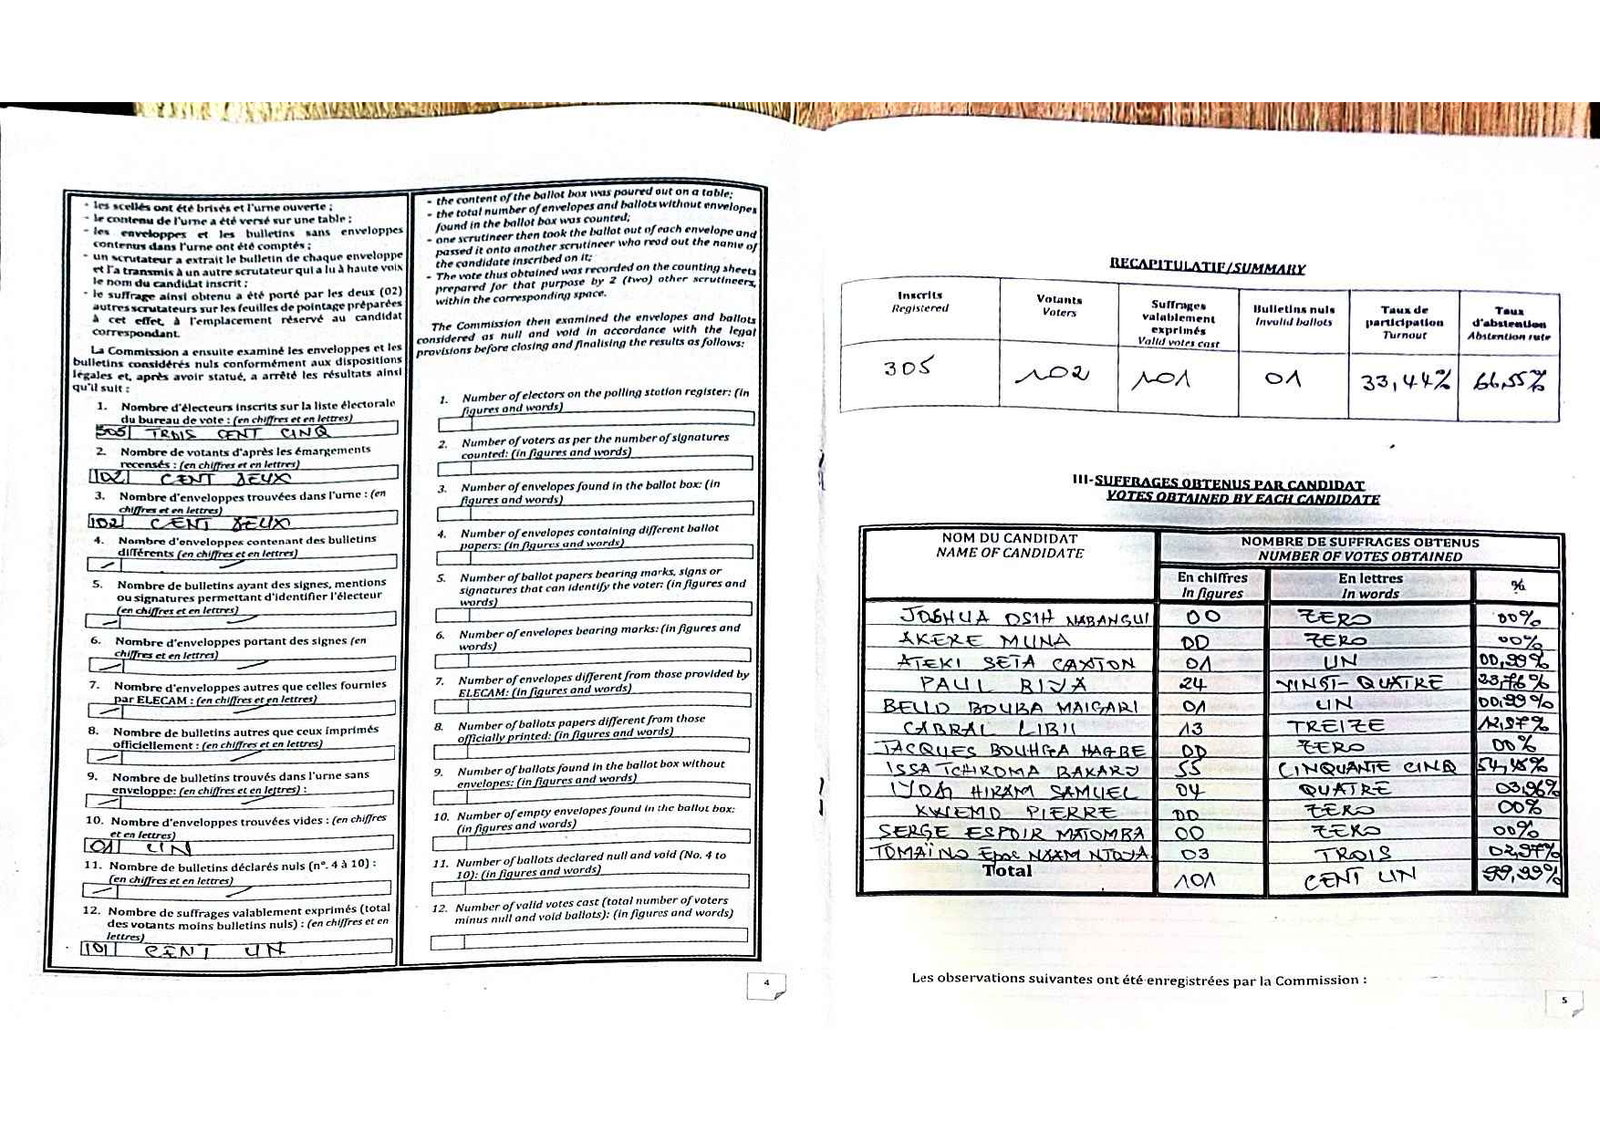 - les scellés ont été brisés et l'urne ouverte ;
- le contenu de l'urne a été versé sur une table ;
- les enveloppes et les bulletins sans enveloppes
contenus dans l'urne ont été comptés ;
- un scrutateur a extrait le bulletin de chaque enveloppe
et l'a transmis à un autre scrutateur qui a lu à haute voix
le nom du candidat inscrit ;
- le suffrage ainsi obtenu a été porté par les deux (02)
autres scrutateurs sur les feuilles de pointage préparées
à cet effet, à l'emplacement réservé au candidat
correspondant.
La Commission a ensuite examiné les enveloppes et les
bulletins considérés nuls conformément aux dispositions
légales et, après avoir statué, a arrêté les résultats ainsi
qu'il suit :
1. Nombre d'électeurs inscrits sur la liste électorale
du bureau de vote : (en chiffres et en lettres)
305 TROIS CENT CINQ
2. Nombre de votants d'après les émargements
recensés : (en chiffres et en lettres)
102 CENT DEUX
3. Nombre d'enveloppes trouvées dans l'urne : (en
chiffres et en lettres)
102 CENT DEUX
4. Nombre d'enveloppes contenant des bulletins
différents (en chiffres et en lettres)
5. Nombre de bulletins ayant des signes, mentions
ou signatures permettant d'identifier l'électeur
(en chiffres et en lettres)
6. Nombre d'enveloppes portant des signes (en
chiffres et en lettres)
7. Nombre d'enveloppes autres que celles fournies
par ELECAM : (en chiffres et en lettres)
8. Nombre de bulletins autres que ceux imprimés
officiellement : (en chiffres et en lettres)
9. Nombre de bulletins trouvés dans l'urne sans
enveloppe: (en chiffres et en lettres) :
10. Nombre d'enveloppes trouvées vides : (en chiffres
et en lettres)
01 UN
11. Nombre de bulletins déclarés nuls (n°. 4 à 10) :
(en chiffres et en lettres)
12. Nombre de suffrages valablement exprimés (total
des votants moins bulletins nuls) : (en chiffres et en
lettres)
101 CENT UN
- the content of the ballot box was poured out on a table;
- the total number of envelopes and ballots without envelopes
found in the ballot box was counted;
- one scrutineer then took the ballot out of each envelope and
passed it onto another scrutineer who read out the name of
the candidate inscribed on it;
- The vote thus obtained was recorded on the counting sheets
prepared for that purpose by 2 (two) other scrutineers,
within the corresponding space.
The Commission then examined the envelopes and ballots
considered as null and void in accordance with the legal
provisions before closing and finalising the results as follows:
1. Number of electors on the polling station register: (in
figures and words)
2. Number of voters as per the number of signatures
counted: (in figures and words)
3. Number of envelopes found in the ballot box: (in
figures and words)
4. Number of envelopes containing different ballot
papers: (in figures and words)
5. Number of ballot papers bearing marks, signs or
signatures that can identify the voter: (in figures and
words)
6. Number of envelopes bearing marks: (in figures and
words)
7. Number of envelopes different from those provided by
ELECAM: (in figures and words)
8. Number of ballots papers different from those
officially printed: (in figures and words)
9. Number of ballots found in the ballot box without
envelopes: (in figures and words)
10. Number of empty envelopes found in the ballot box:
(in figures and words)
11. Number of ballots declared null and void (No. 4 to
10): (in figures and words)
12. Number of valid votes cast (total number of voters
minus null and void ballots): (in figures and words)
4
RECAPITULATIF/SUMMARY
Inscrits Registered | Votants Voters | Suffrages valablement exprimés Valid votes cast | Bulletins nuls Invalid ballots | Taux de participation Turnout | Taux d'abstention Abstention rate
305 102 101 01 33,44% 66,55%
III-SUFFRAGES OBTENUS PAR CANDIDAT
VOTES OBTAINED BY EACH CANDIDATE
NOM DU CANDIDAT NOMBRE DE SUFFRAGES OBTENUS
NAME OF CANDIDATE NUMBER OF VOTES OBTAINED
En chiffres En lettres %
In figures In words
JOSHUA OSIH NABANGUI 00 ZERO 00%
AKERE MUNA 00 ZERO 00%
ATEKI SETA CAXTON 01 UN 00,99%
PAUL BIYA 24 VINGT-QUATRE 23,76%
BELLO BOUBA MAIGARI 01 UN 00,99%
CABRAL LIBII 13 TREIZE 12,87%
JACQUES BOUHGA HAGBE 00 ZERO 00%
ISSA TCHIROMA BAKARY 55 CINQUANTE CINQ 54,45%
IYODI HIRAM SAMUEL 04 QUATRE 03,96%
KWEMO PIERRE 00 ZERO 00%
SERGE ESPOIR MATOMBA 00 ZERO 00%
TOMAÏNO Epse NDAM NJOYA 03 TROIS 02,97%
Total 101 CENT UN 99,99%
Les observations suivantes ont été enregistrées par la Commission :
5